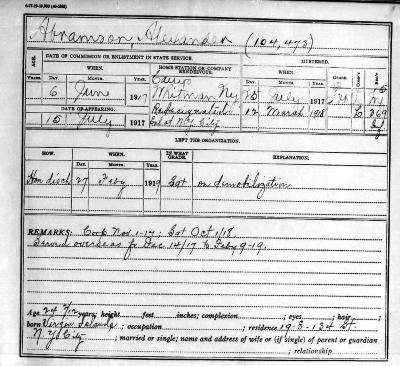 Abramson, Alexander (104,473)
AGE.
DATE OF COMMISSION OR ENLISTMENT IN STATE SERVICE.
HOME STATION OR COMPANY RENDEZVOUS.
MUSTERED.
Years. DAY. WHEN. MONTH. YEAR. DAY. WHEN. MONTH. YEAR. GRADE. COMP'Y. REG'T.
6 June 1917 Camp Whitman NY 15 July 1917
DATE OF APPEARING.
15 July 1917 N.Y. City 12 March 1918 69
LEFT THE ORGANIZATION.
HOW. DAY. WHEN. MONTH. YEAR. IN WHAT GRADE. EXPLANATION.
Hon disch 27 Feby 1919 Sgt on demobilization
REMARKS: Corp Nov 1-17; Sgt Oct 1/18
Served overseas fr Dec 14/17 to Feby 9-19.
Age 24 7/12 years; height feet inches; complexion ; eyes ; hair ;
born Virgin Islands ; occupation ; residence 19-E-134 St.
N.Y. City ; married or single; name and address of wife or (if Single) of parent or guardian
; relationship